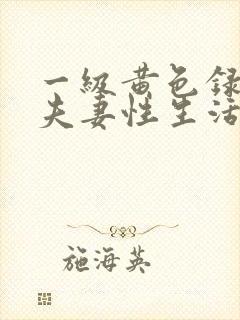 一级黄色录
夫妻性生活
施海英